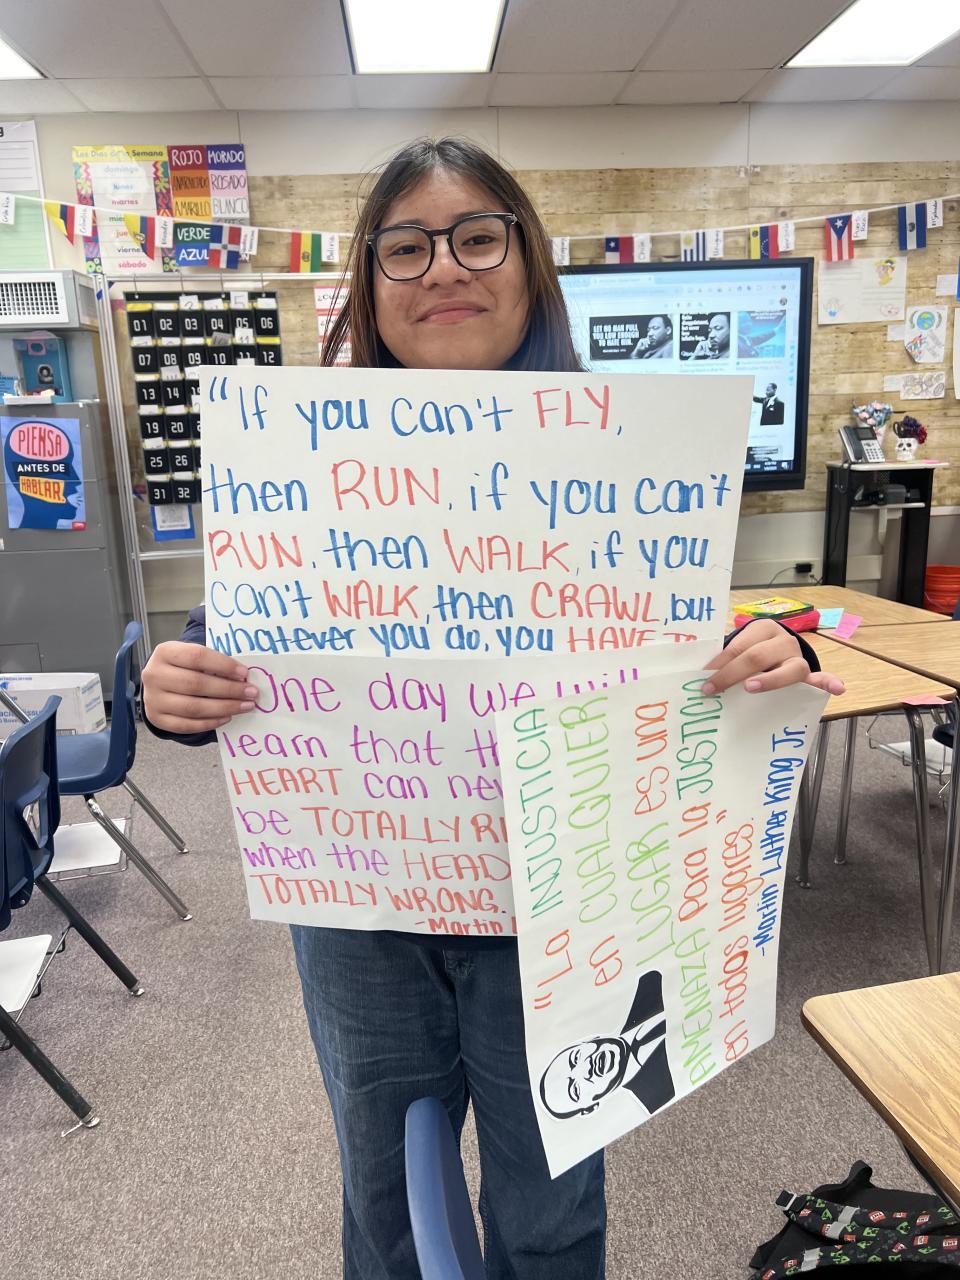 Los Días de la Semana
domingo
lunes
martes
jueves
viernes
sábado
ROJO
MORADO
ANARANJADO
ROSADO
AMARILLO
BLANCO
VERDE
AZUL
Bolivia
01 02 03 04 05 06
07 08 09 10 11 12
13 14
19 20
25 26
31 32
PIENSA
ANTES DE
HABLAR
LET NO MAN PULL
YOU LOW ENOUGH
TO HATE HIM.
"If you can't FLY,
then RUN, if you can't
RUN, then WALK, if you
can't WALK, then CRAWL, but
whatever you do, you HAVE TO
One day we will
learn that th
HEART can nev
be TOTALLY RI
when the HEAD
TOTALLY WRONG.
-Martin L
"La INJUSTICIA
en CUALQUIER
LUGAR es una
AMENAZA para la JUSTICIA
en todos lugares."
-Martin Luther King Jr.